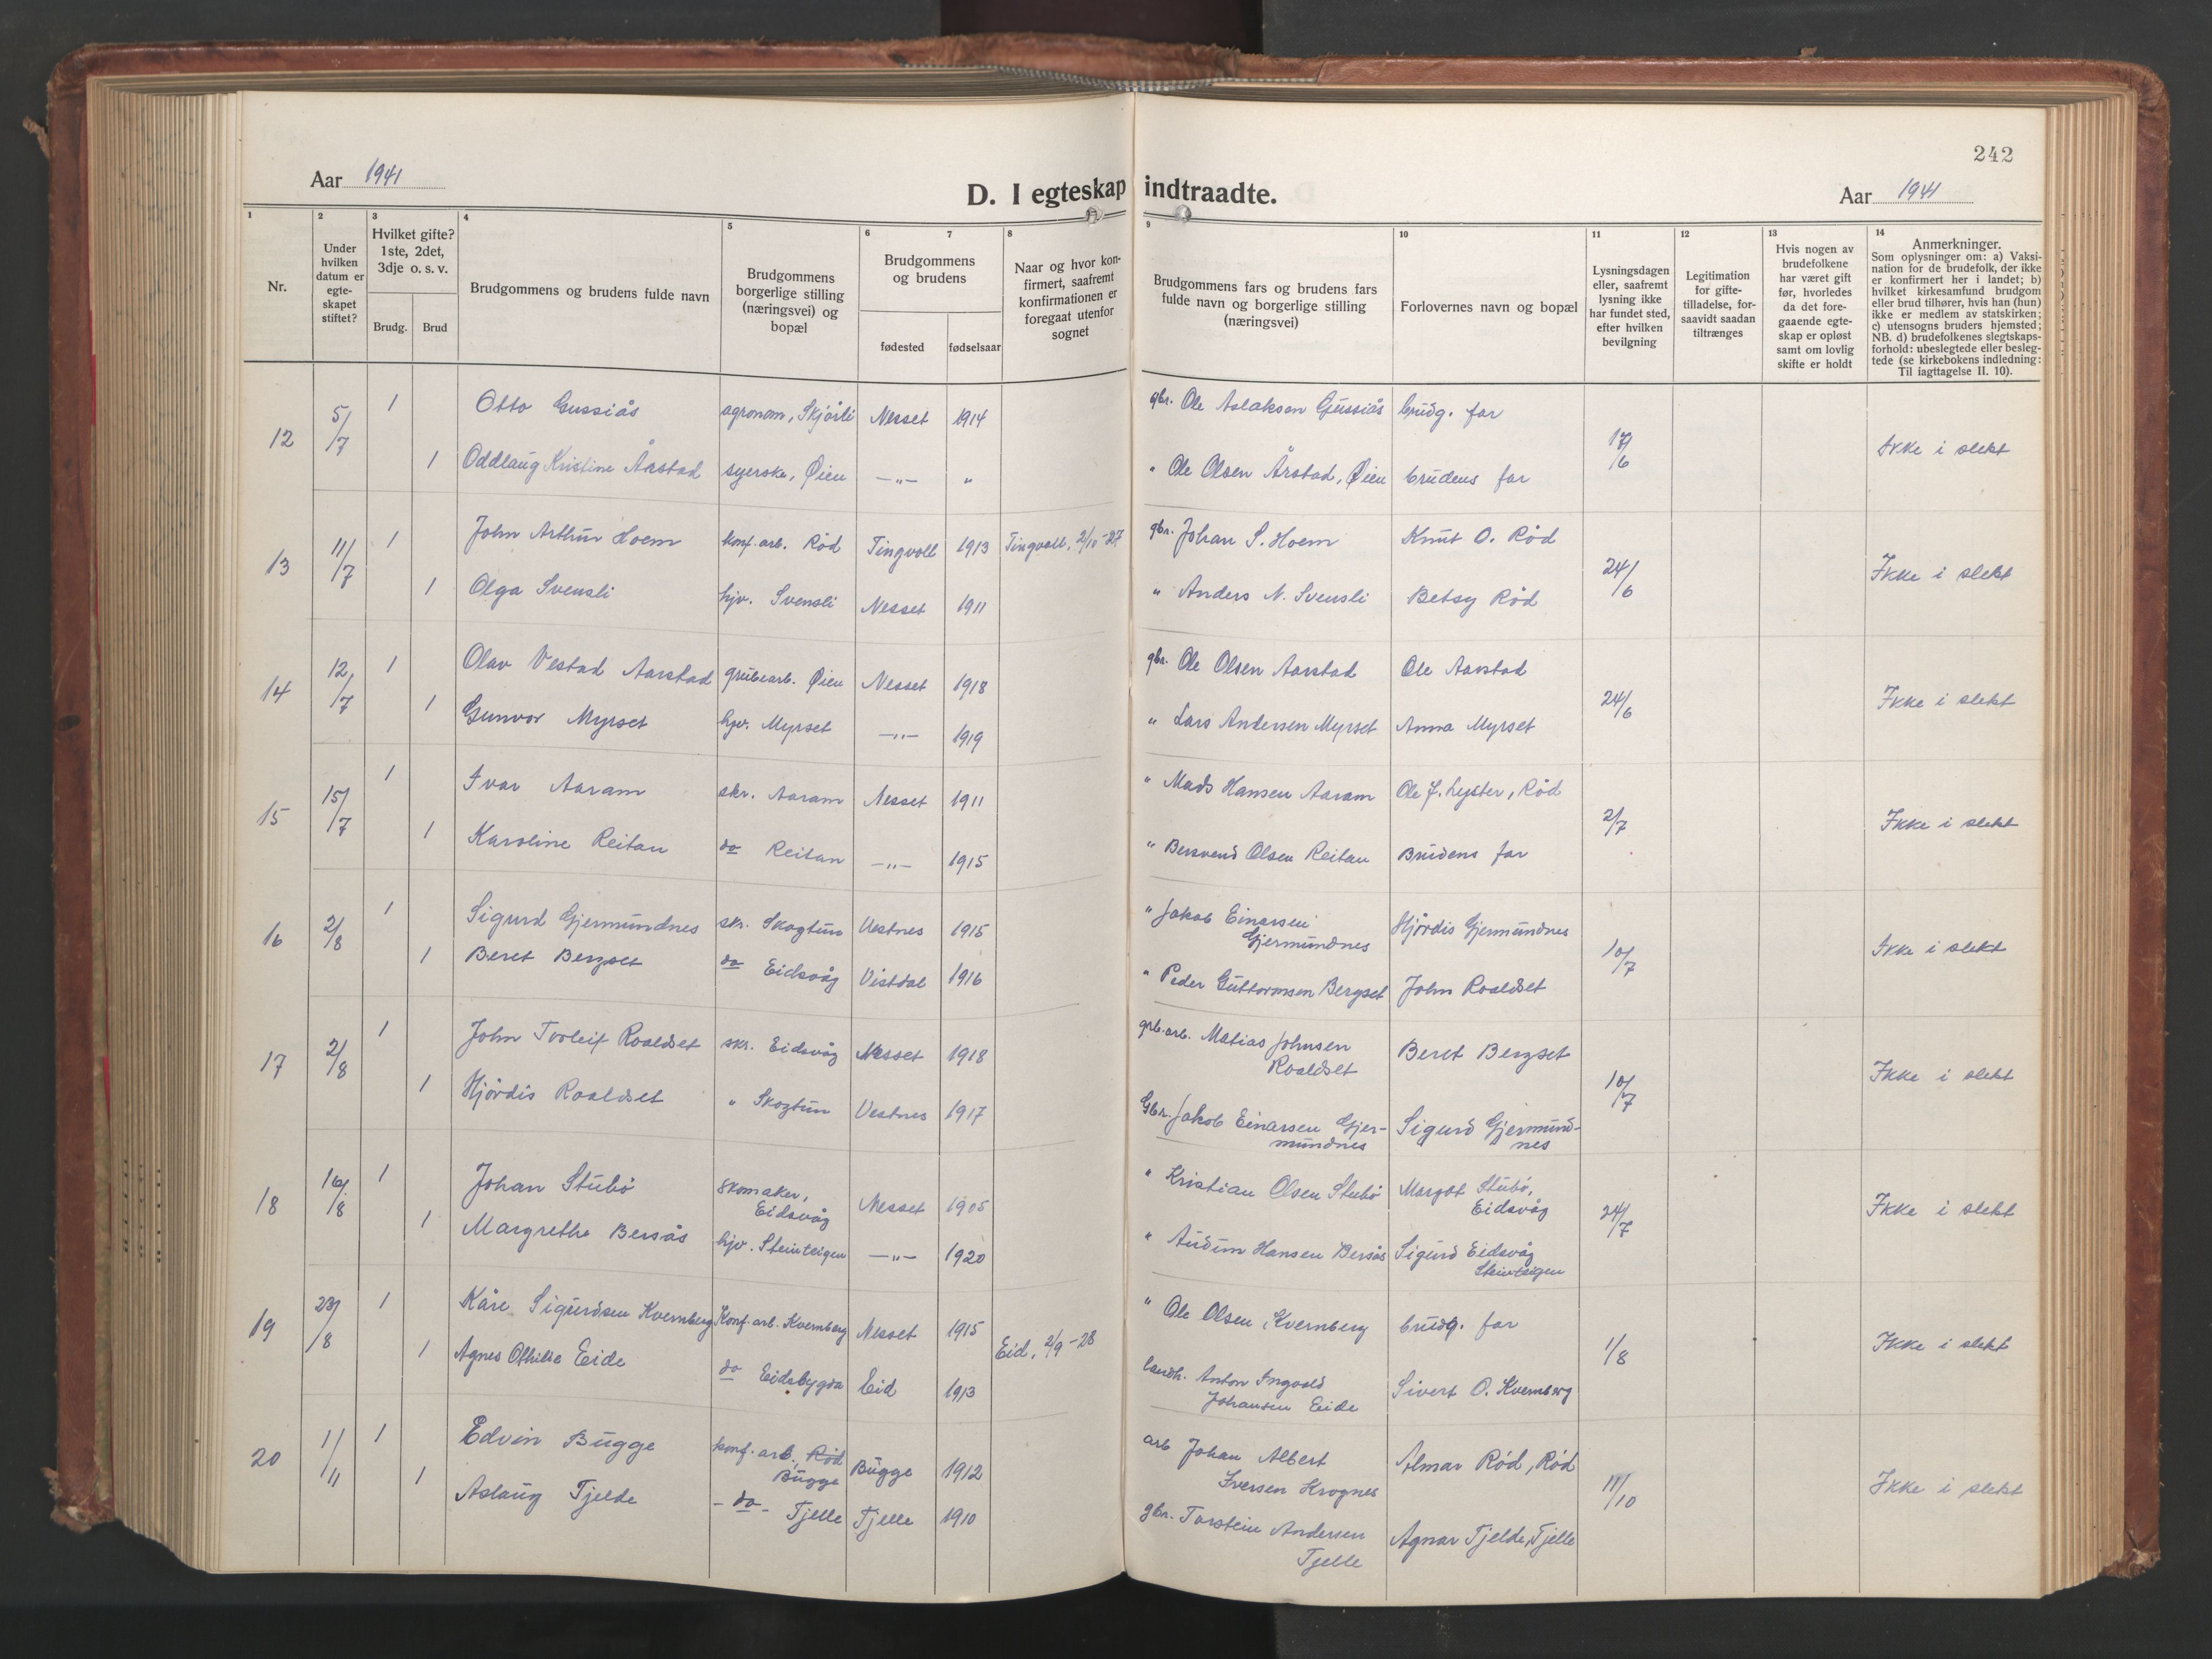 242
Aar 1941
D. I egteskap indtraadte.
Aar 1941
1
Nr.
2
Under
hvilken
datum er
egte-
skapet
stiftet?
3
Hvilket gifte?
1ste, 2det,
3dje o. s. v.
Brudg.
Brud
4
Brudgommens og brudens fulde navn
5
Brudgommens
borgerlige stilling
(næringsvei) og
bopæl
6
7
Brudgommens
og brudens
fødested
fødselsaar
8
Naar og hvor kon-
firmert, saafremt
konfirmationen er
foregaat utenfor
sognet
9
Brudgommens fars og brudens fars
fulde navn og borgerlige stilling
(næringsvei)
10
Forlovernes navn og bopæl
11
Lysningsdagen
eller, saafremt
lysning ikke
har fundet sted,
efter hvilken
bevilgning
12
Legitimation
for gifte-
tilladelse, for-
saavidt saadan
tiltrænges
13
Hvis nogen av
brudefolkene
har været gift
før, hvorledes
da det fore-
gaaende egte-
skap er opløst
samt om lovlig
skifte er holdt
14
Anmerkninger.
Som oplysninger om: a) Vaksi-
nation for de brudefolk, der ikke
er konfirmert her i landet; b)
hvilket kirkesamfund brudgom
eller brud tilhører, hvis han (hun)
ikke er medlem av statskirken;
c) utensogns bruders hjemsted;
NB. d) brudefolkenes slegtskaps-
forhold: ubeslegtede eller besleg-
tede (se kirkebokens indledning:
Til iagttagelse II. 10).
12 5/7 1 Otto Gussiås agronom, Skjørli Nesset 1914 gbr. Ole Aslaksen Gussiås brudg. far 17/6 Ikke i slekt
1 Oddlaug Kristine Årstad syerske, Øien -"- " " Ole Olsen Årstad, Øien brudens far
13 11/7 1 John Arthur Hoem konf. arb. Rød Tingvoll 1913 Tingvoll, 2/10-27 gbr. Johan S. Hoem Knut O. Rød 24/6 Ikke i slekt
1 Olga Svensli hjv. Svensli Nesset 1911 " Anders N. Svensli Betsy Rød
14 12/7 1 Olav Vestad Aarstad grubearb. Øien Nesset 1918 gbr. Ole Olsen Aarstad Ole Aarstad 24/6 Ikke i slekt
1 Gunvor Myrset hjv. Myrset -"- 1919 " Lars Andersen Myrset Anna Myrset
15 15/7 1 Ivar Aaram skr. Aaram Nesset 1911 " Mads Hansen Aaram Ole J. Lyster, Rød 2/7 Ikke i slekt
1 Karoline Reitan do Reitan -"- 1915 " Bersvend Olsen Reitan Brudens far
16 2/8 1 Sigurd Gjermundnes skr. Skogtun Vestnes 1915 " Jakob Einarsen
Gjermundnes Hjørdis Gjermundnes 10/7 Ikke i slekt
1 Beret Bergset do Eidsvåg Vistdal 1916 " Peder Guttormsen Bergset John Roaldset
17 2/8 1 John Torleif Roaldset skr. Eidsvåg Nesset 1918 grb.arb. Matias Johnsen
Roaldset Beret Bergset 10/7 Ikke i slekt
1 Hjørdis Roaldset " Skogtun Vestnes 1917 Gbr. Jakob Einarsen Gjer-
mundnes Sigurd Gjermund-
nes
18 16/8 1 Johan Stubø skomaker,
Eidsvåg Nesset 1905 " Kristian Olsen Stubø Margot Stubø,
Eidsvåg 24/7 Ikke i slekt
1 Margrethe Bersås hjv. Steinteigen -"- 1920 " Audun Hansen Bersås Sigurd Eidsvåg
Steinteigen
19 23/8 1 Kåre Sigurdsen Kvernberg Konf. arb. Kvernberg Nesset 1915 " Ole Olsen Kvernberg brudg. far 1/8 Ikke i slekt
1 Agnes Othilie Eide do Eidsbygda Eid 1913 Eid, 2/9-28 landh. Anton Ingvald
Johansen Eide Sivert O. Kvernberg
20 1/11 1 Edvin Bugge konf. arb., Rød
Bugge Bugge 1912 arb Johan Albert
Iversen Krognes Almar Rød, Rød 11/10 Ikke i slekt
1 Aslaug Tjelde -do- Tjelle Tjelle 1910 gbr. Torstein Andersen
Tjelle Agnar Tjelde, Tjelle